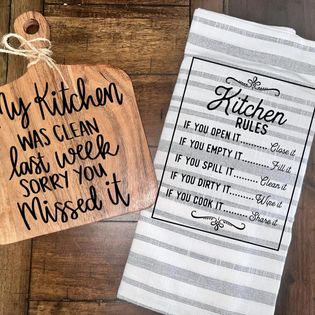 My Kitchen
WAS CLEAN
last week
SORRY YOU
Missed it
Kitchen
RULES
IF YOU OPEN IT......... Close it
IF YOU EMPTY IT......... Fill it
IF YOU SPILL IT......... Clean it
IF YOU DIRTY IT......... Wipe it
IF YOU COOK IT......... Share it